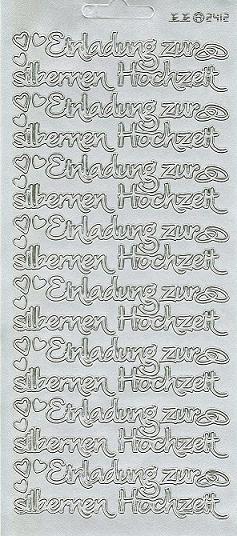 2412
Einladung zur
silbernen Hochzeit
Einladung zur
silbernen Hochzeit
Einladung zur
silbernen Hochzeit
Einladung zur
silbernen Hochzeit
Einladung zur
silbernen Hochzeit
Einladung zur
silbernen Hochzeit
Einladung zur
silbernen Hochzeit
Einladung zur
silbernen Hochzeit